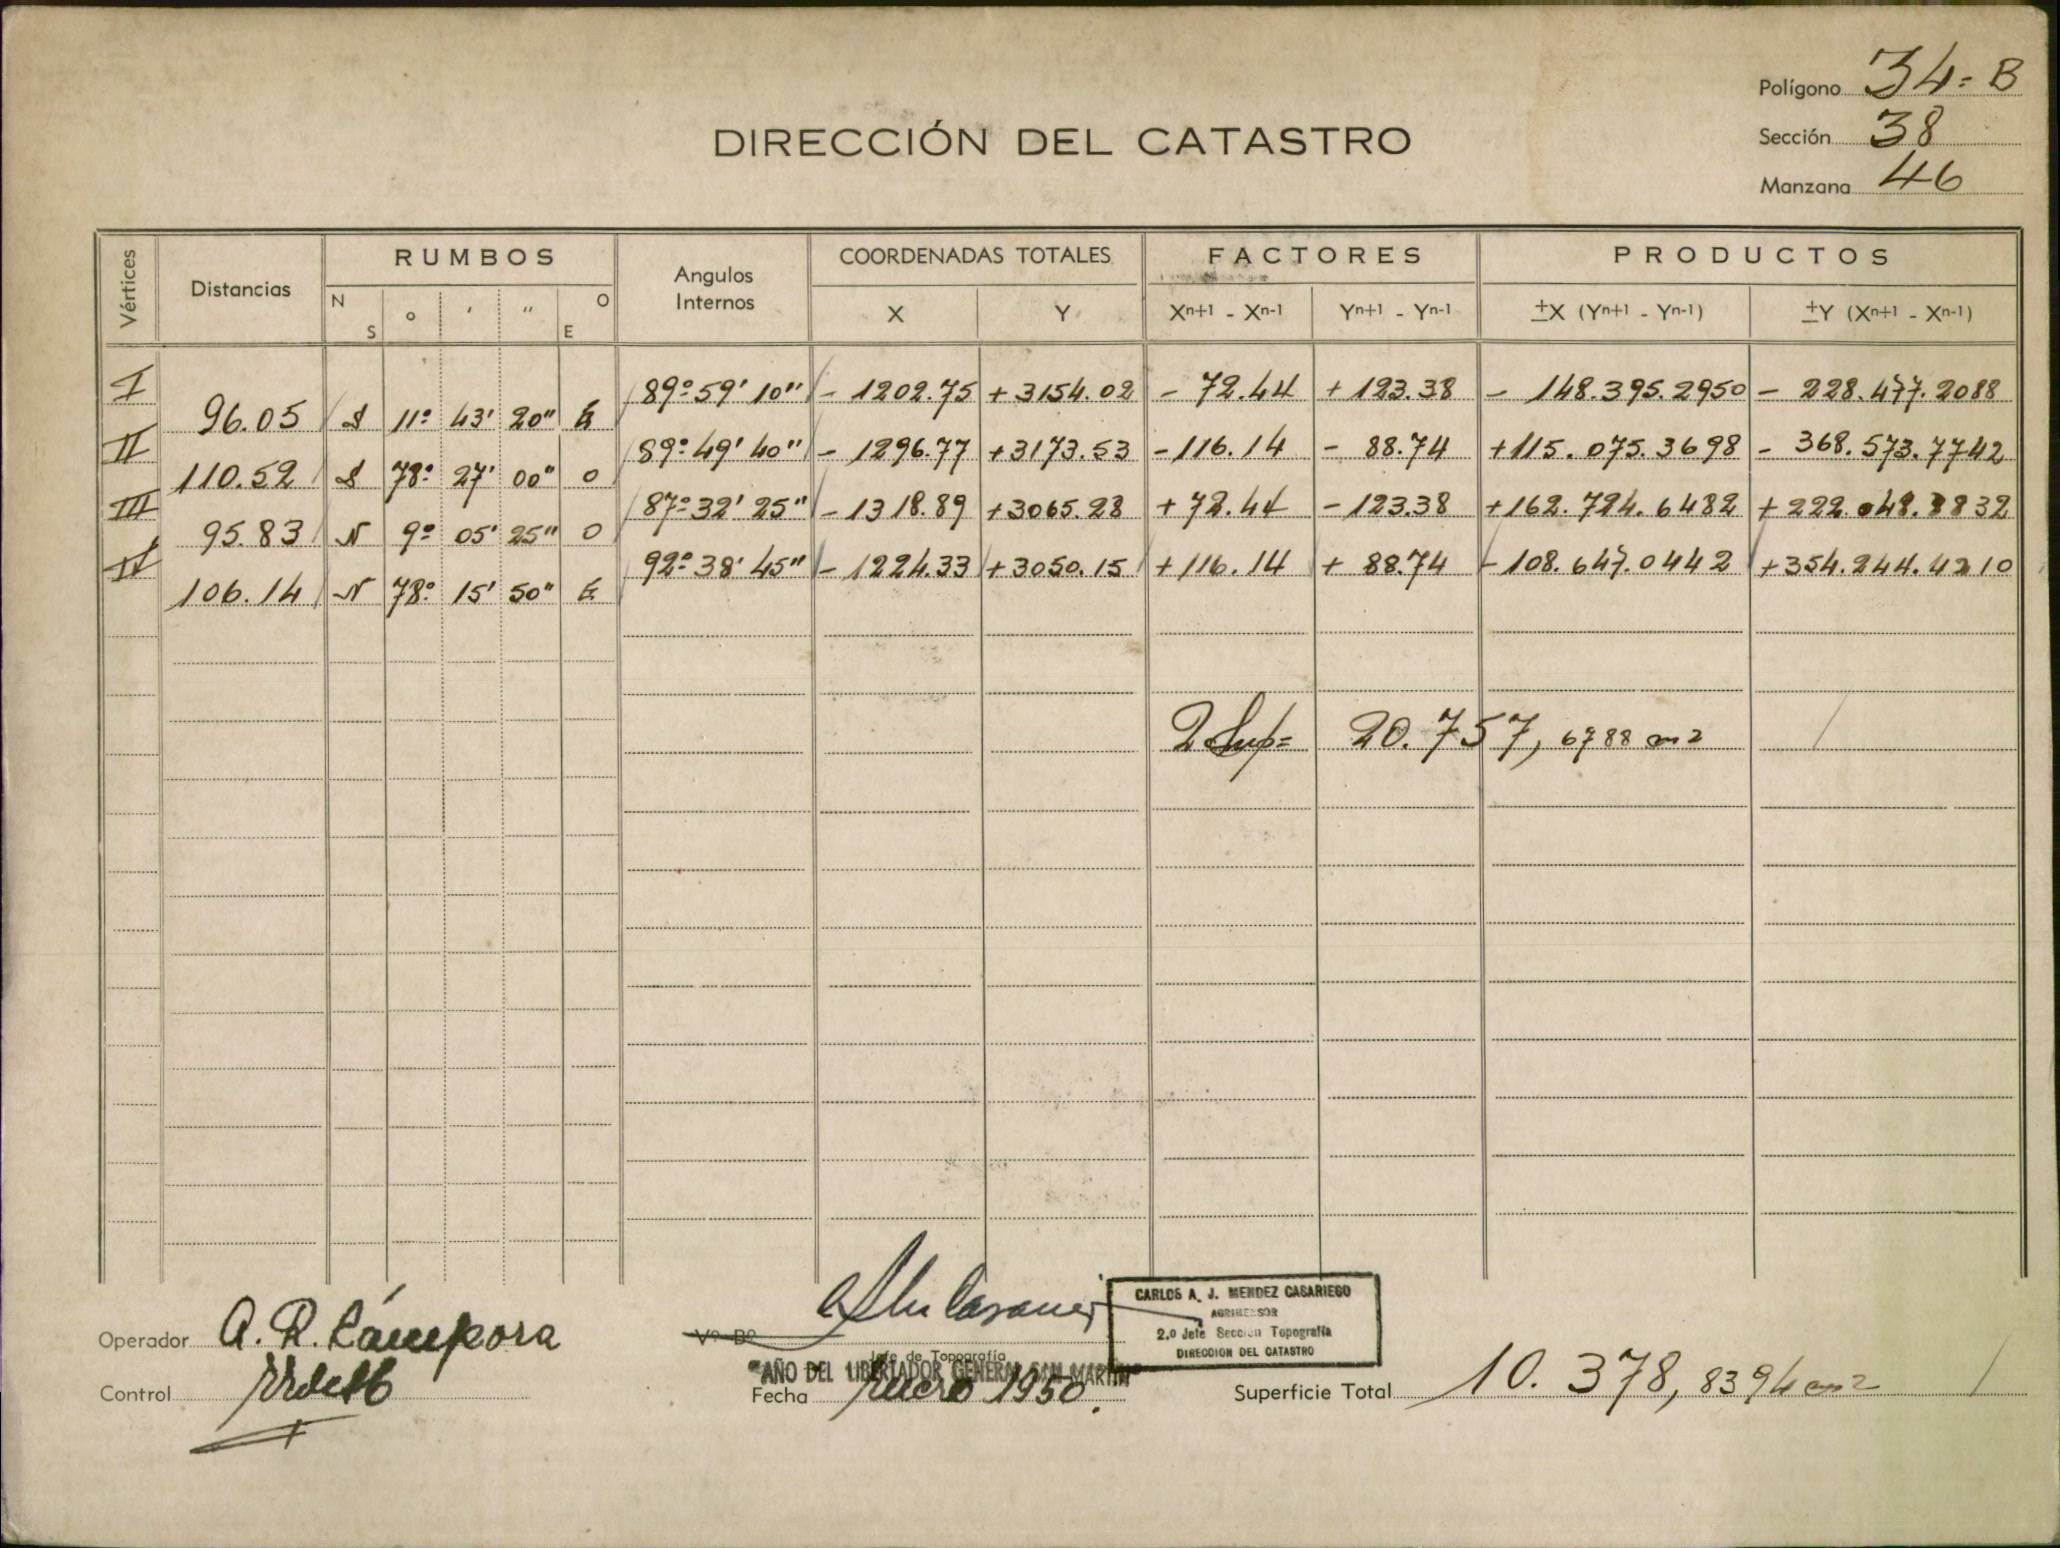 Polígono 34=B
DIRECCIÓN DEL CATASTRO
Sección 38
Manzana 46
Vértices Distancias RUMBOS Angulos Internos COORDENADAS TOTALES FACTORES PRODUCTOS
N S ° ' " O E X Y Xn+1 - Xn-1 Yn+1 - Yn-1 ±X (Yn+1 - Yn-1) ±Y (Xn+1 - Xn-1)
I 89°59'10" - 1202.75 +3154.02 - 72.44 + 123.38 - 148.395.2950 - 228.477.2088
96.05 S 11° 43' 20" E
II 89°49'40" - 1296.77 +3173.53 -116.14 - 88.74 +115.075.3698 - 368.573.7742
110.52 S 78° 27' 00" O
III 87°32'25" -1318.89 +3065.28 + 72.44 -123.38 +162.724.6482 +222.048.8832
95.83 N 9° 05' 25" O
IV 92°38'45" - 1224.33 +3050.15 +116.14 + 88.74 -108.647.0442 +354.244.4210
106.14 N 78° 15' 50" E
2 Sup= 20.757, 6788 m2
CARLOS A. J. MENDEZ CASARIEGO
AGRIMENSOR
2.o Jefe Sección Topografía
DIRECCION DEL CATASTRO
Operador A. R. Cámpora
Vº Bº
Jefe de Topografía
"AÑO DEL LIBERTADOR GENERAL SAN MARTIN"
Control
Fecha Enero 1950.
Superficie Total 10.378, 8394 m2